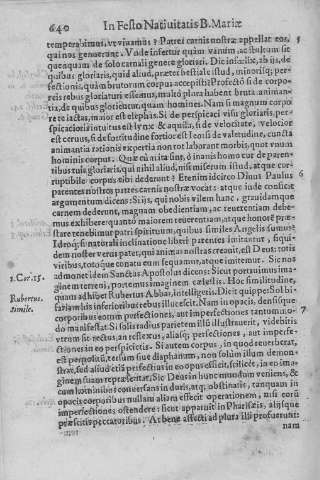 640 In Festo Natiuitatis B. Mariæ
temperabimus, ve viuamus? Patres carnis nostræ appellat eos, 5
qui nos genuerunt. Vnde infertur quàm vanum, ac
quenquam de solo carnali genere gloriari. Dic infælix, ab ijs, de
quibus gloriaris, quid aliud, præter bestiale istud, minorisq; per-
fectionis, quàm brutorum corpus accepisti? Profectò si de corpo-
reis rebus gloriaturi essemus, multò plura habent bruta animan-
tia, de quibus glorientur, quam homines. Nam si magnum corpo
re te iactas, maior est elephas. Si de perspicaci visu gloriaris, per-
spicacioris intuitus est lynx & aquila, si de velocitate, velocior
est ceruus, si de fortitudine fortior est leo: si de valetudine, cuncta
animantia rationis expertia non tot laborant morbis, quot vnum
hominis corpus. Quæ cùm ita sint, ò inanis homo cur de paren-
tibus tuis gloriaris, qui nihil aliud, nisi miserum istud, atque cor-
ruptibile corpus tibi dederunt? Etenim idcirco Diuus Paulus 6
parentes nostros patres carnis nostræ vocat: atque inde conficit
argumentum dicens: Si ijs, qui nobis vilem hanc, grauidamque
carnem dederunt, magnam obedientiam, ac reuerentiam debe-
mus exhibere: quantò maiorem reuerentiam, atque honorē præ-
stare tenebimur patri spirituum, quibus similes Angelis sumus?
Idroq; si naturali inclinatione liberi parentes imitantur, siqui-
dem noster verus pater, qui animas nostras creauit, est Deus: totis
viribus, totoque conatu eum sequamur, atque imitemur. Sic nos
1. Cor. 15. admonet idem Sanctus Apostolus dicens: Sicut portauimus ima-
ginem terreni, portemus imaginem cælestis. Hoc similitudine,
Rubertus. quam adhibet Rubertus Abbas, intelligetis. Dicit quippe: Sol bi-
Simile. fariam his inferioribus rebus illucescit. Nam in opacis, densisque 7
corporibus eorum perfectiones, aut imperfectiones tantummo-
do manifestat. Si solis radius parietem istū illustrauerit, videbitis
vtrum sit rectus, an reflexus, aliasq; perfectiones, aut imperfe-
ctiones in eo perspicietis. Si autem corpus, in quod reuerberat,
est perpolitū, tersum siue diaphanum, non solùm illum demon-
strat, sed aliud etiā perfectius in eo opus efficit, scilicet, in eo ima-
ginem suam repræsentat. Sic Deus in hunc mundum veniens, &
cum hominibus conuersans in duris, atq; obstinatis, tanquam in
opacis corporibus nullam aliam effecit operationem, nisi eorū
imperfectiones ostendere: sicut apparuit in Pharisæis, alijsque
præscitis peccatoribus. At bene affecti ad plura illi profuerunt:
nam